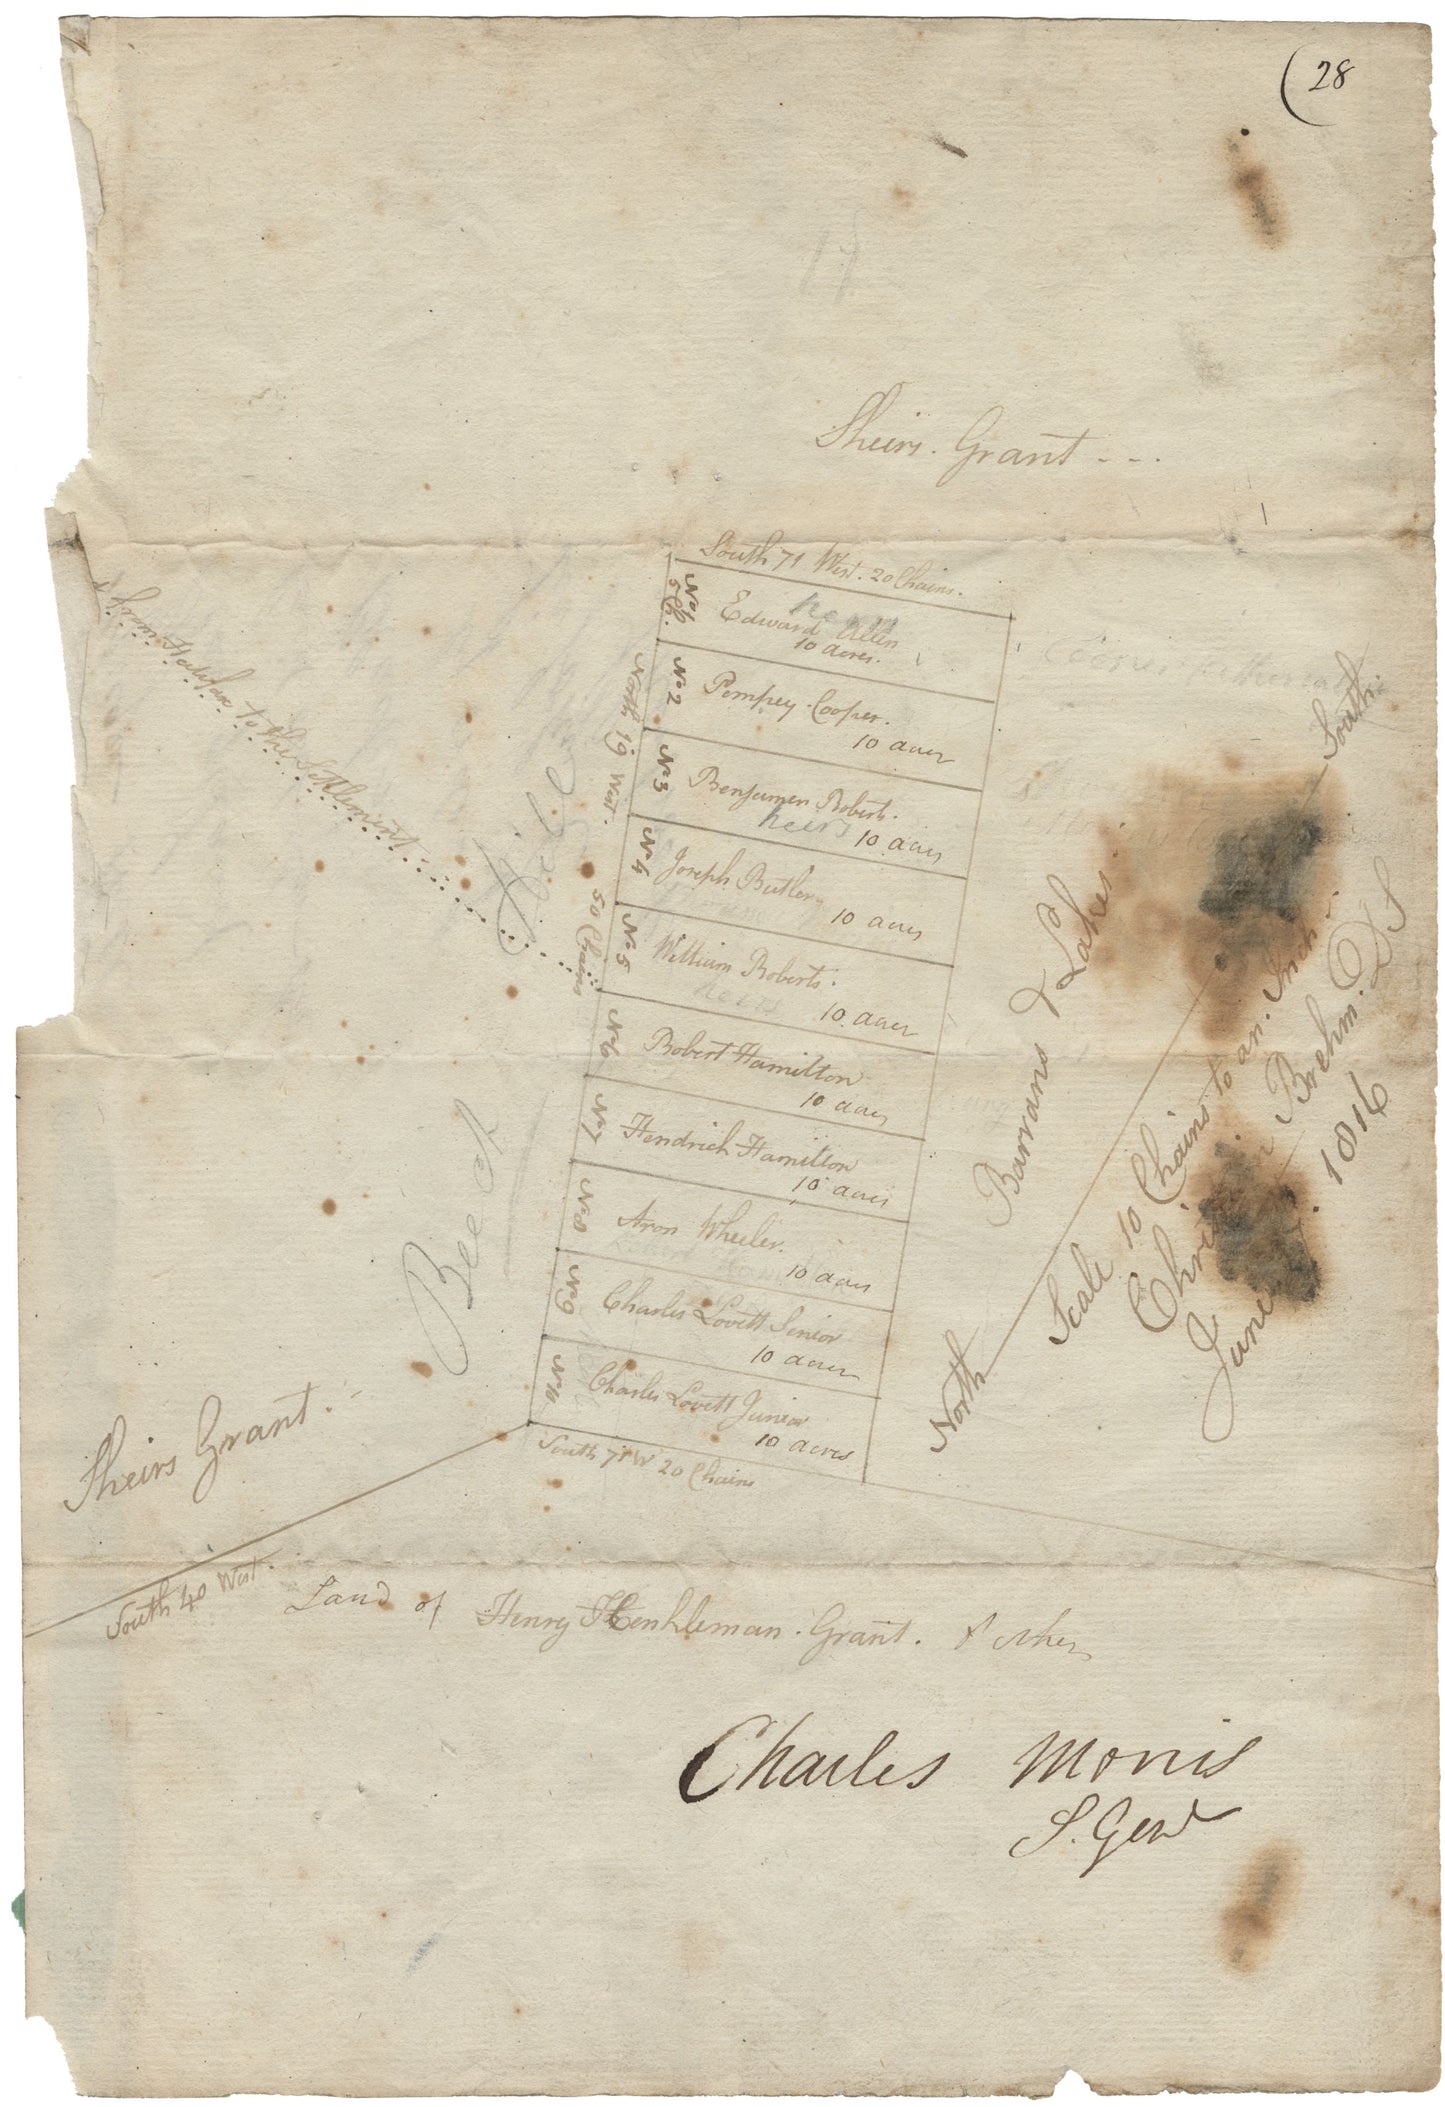 (28
Sheirs. Grant ---
South 71 West. 20 Chains.
No 1
5 Ch.
heirs
Edward Allen
10 acres.
No 2
Pompey Cooper.
10 acres
No 3
Benjamen Roberts.
heirs
10 acres
No 4
Joseph Butler
10 acres
No 5
William Roberts.
heirs
10 acres
No 6
Robert Hamilton
10 acres
No 7
Hendrich Hamilton
10 acres
No 8
Aron Wheeler.
10 acres
No 9
Charles Lovett Senior
10 acres
No 10
Charles Lovett Junior
10 acres
South 71 W 20 Chains
North 19 West.
50 Chains
from Halifax to the Settlement
Sheirs Grant.
South 40 West.
Barrans & Lakes
North
South
Scale 10 Chains to an Inch
Brehm. DS
June 1816
Land of Henry Henkleman. Grant. & others
Charles Morris
S. Genl